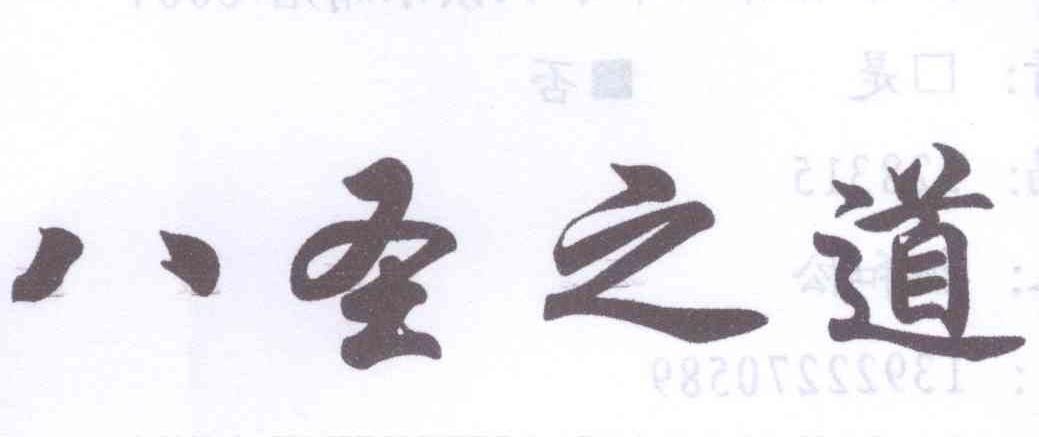 八圣之道